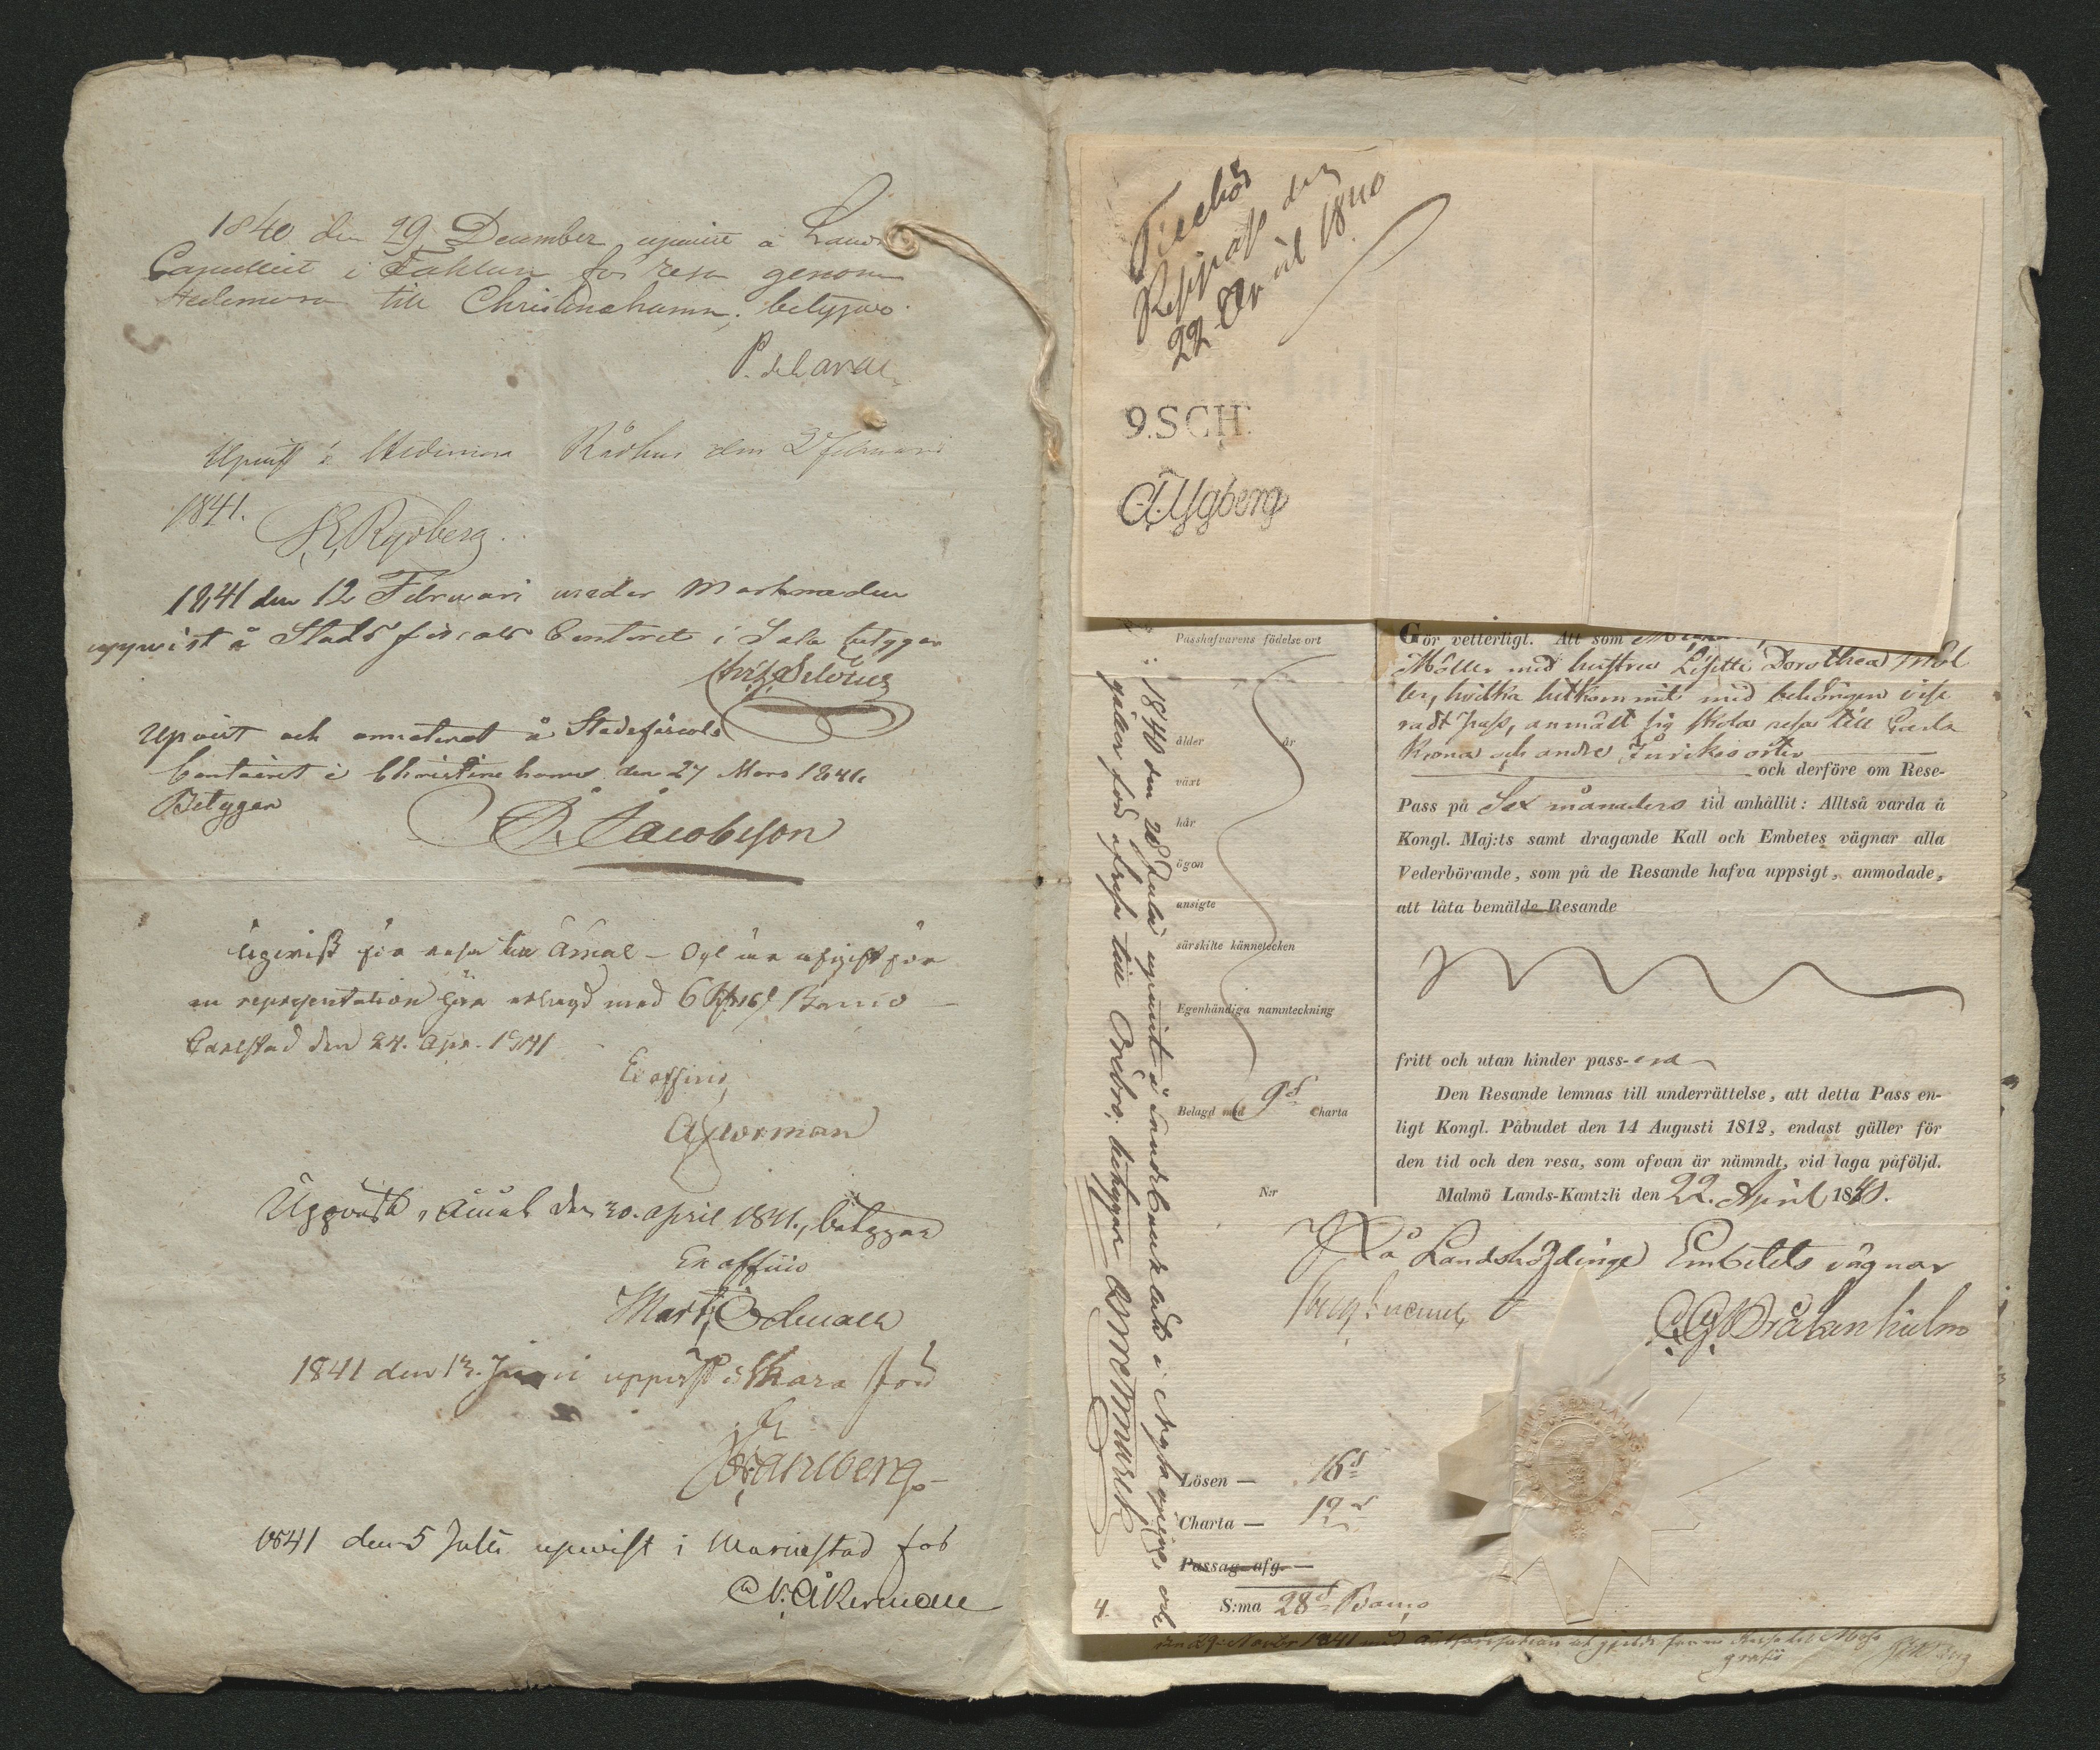 1840 den 29 December uppvist å Lands
Cancelliet i Fahlun för resa genom
Hedemora till Christinehamn; betygas.
P. deLaval
Upvist å Hedemora Rådhus den 3 februari
1841.
Rydberg.
1841 den 12 Februari under Marknaden
uppvist å Stadsfiscals Contoret i Sala betygar
Upvist och annoterat å Stadsfiscals
Contoiret i Christinehamn den 27 Mars 1841.
Betygar
Jacobsson
Upvist för resa till Åmål – Och är afgift för
en representation här erlagd med 6 Banco –
Carlstad den 24. Apr. 1841
Ex officio
Åkerman
Uppvist i Åmål den 30. april 1841., betygar
Ex officio
Mart. Ödman
1841 den 13. Juni uppvist i Skara för
Wahlberg
1841 den 5 Julii upvist i Mariestad för
N. Åkerman
Tillhör
Respass den
22 April 1840
9.SCH.
Passhafvarens födelse ort
ålder
år
växt
hår
ögon
ansigte
särskilte kännetecken
Egenhändiga namnteckning
Belagd med 9 s. Charta
N:r
1840 den 28 Julii uppvist å Landscancelliet i Nyköping, och
gäller för afresa till Örebro, betygar
Gör vetterligt. Att som
Möller med hustru Lisetti Dorothea Möl
ler, hvilka hitkommit med behörigen vise
radt pass, anmält sig skola resa till Carls
krona och andre Inrikes orter
och derföre om Rese-
Pass på Sex månaders tid anhållit: Alltså varda å
Kongl. Maj:ts samt dragande Kall och Embetes vägnar alla
Vederbörande, som på de Resande hafva uppsigt, anmodade,
att låta bemälde Resande
fritt och utan hinder pass-era
Den Resande lemnas till underrättelse, att detta Pass en-
ligt Kongl. Påbudet den 14 Augusti 1812, endast gäller för
den tid och den resa, som ofvan är nämndt, vid laga påföljd.
Malmö Lands-Kantzli den 22. April 1840.
På Landshöfdinge Embetets vägnar
Lösen — 16 s
Charta — 12 s
Passag-afg. —
S:ma 28 s Banco
4.